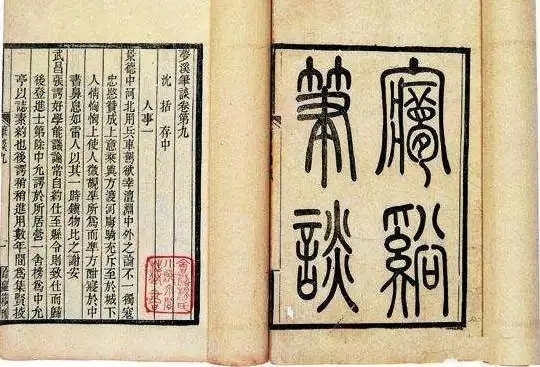 夢谿
筆談
夢溪筆談卷第九
沈括存中
人事一
景德中河北用兵車駕欲幸澶淵中外之論不一獨寇
忠愍贊成上意乘輿方渡河虜騎充斥至於城下
人情恟恟上使人微覘準所為而準方酣寢於中
書鼻息如雷人以其一時鎮物比之謝安
武昌張諤好學能議論常自約仕至縣令則致仕而歸
後登進士第除中允諤於所居營一舍榜為中允
亭以誌素約也後諤稍稍進用數年間為集賢校